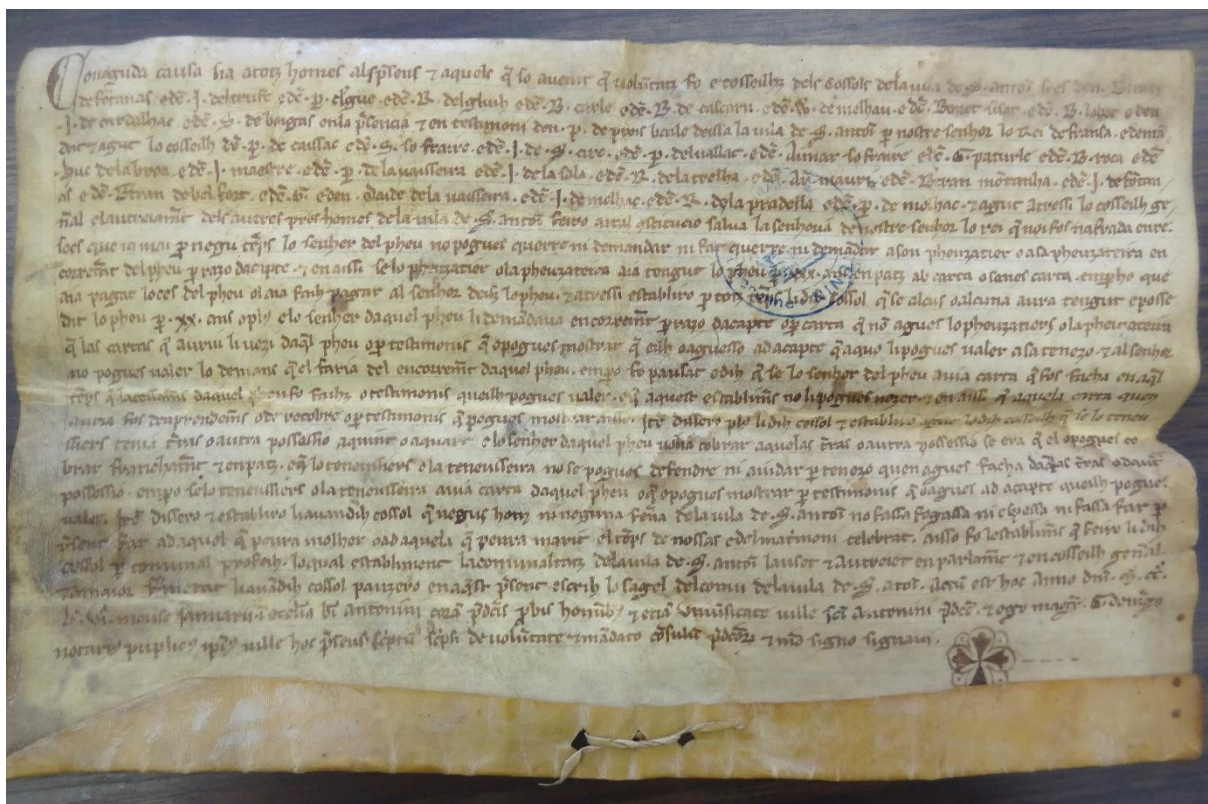 Conaguda causa sia a totz homes als p̄sens ⁊ aquels q̄ so avenir q̄ voluntatz fo e cosseilhz dels cossols dela vila de S. antoni so es den
de fontanas edē .J. deltruke edē .p. clergue edē .R. delgluih edē .B. carle edē .B. de cascarn edē .W. de melhau edē Bonet edē .B. laber eden
.J. de cardalhac edē .S. de boigas en la p̄sencia ⁊ en testimoni den .p. de prons baile deissa la vila de .S. antoni p̄ nostre senhor lo rei de fransa
⁊ agut lo cosseilh dē .p. de caussac edē .S. so fraire edē .J. de .S. circ edē .p. delvallat edē Aimar so fraire edē .G. paturle edē .B. roca edē
hue dela broa edē .J. maestre edē .p. dela vaisseira edē .J. dela sala edē .R. dela trelha edē mauri edē Bertran mōtanha edē .J. de fontan
as edē Bertran de bel fort edē .G. eden daide dela vaisseira edē .J. de molhac edē .R. dela pradella edē .p. de molhac ⁊ agut atressi lo cosseilh ge
n̄al el autreiam̄t dels autres pros homes dela vila de .S. antoni feiro aital salva la senhoria de nostre senhor lo rei q̄ noi fos nafrada en re
so es que ia mai p̄ negu tēps lo senher del pheu no pogues querre ni demandar ni far querre ni demādar a son pheuzatier o a sa pheuzateira en
correm̄t del pheu p̄ razo dacapte ⁊ en aissi se lo pheuzatier o la pheuzateira aia tengut lo pheu p̄ .XXX. ans en patz ab carta o senes carta emp̄ho que
aia pagat lo ces del pheu o laia faih pagar al senhor deih lo pheu ⁊ atressi establiro p̄ totz tēps li dih cossol q̄ se alcus o alcuna aura tengut e posse
dit lo pheu p̄ .XX. ans o plus e lo senher daquel pheu li demādava encorrem̄t p̄ razo dacapte o p̄ carta q̄ nō agues lo pheuzatiers o la pheuzateira
q̄ las cartas q̄ auriu li vezi daq̄l pheu o p̄ testimonis q̄ o pogues mostrar q̄ eilh o aguesso ad acapte q̄ aquo li pogues valer a sa tenezo ⁊ al senhor
no pogues valer lo demans q̄ el faria del encorrem̄t daquel pheu emp̄o fo pausat e dih q̄ se lo senhor del pheu avia carta q̄ fos facha en aq̄l
tēps q̄ lacessions daquel pheu fo faihz o testimonis queilh pogues valer eq̄ aquest establimēs no li pogues nozer ⁊ en aissi q̄ aquela carta quen
auria fos denprendemēs o de recobre o p̄ testimonis q̄ pogues mostrar aisso Itē dissero plus li dih cossol ⁊ establiro q̄ se lo teneu
ssiers tenia t̄ras o autra possessio a quint o a quart e lo senher daquel pheu volia cobrar aquelas t̄ras o autra possessio se era q̄ el o pogues co
brar francham̄t ⁊ en patz eq̄ lo teneussiers o la teneusseira no se pogues defendre ni aiudar p̄ tenezo quen agues facha daq̄las t̄ras o dautra
possessio emp̄o se lo teneussiers o la teneusseira avia carta daquel pheu o q̄ o pogues mostrar p̄ testimonis q̄ o agues ad acapte queilh pogues
valer Itē dissero ⁊ establiro li avandih cossol q̄ negus hom ni neguna fēna dela vila de .S. antoni no fassa fogassa ni ni fassa far p̄
p̄sent far ad aquel q̄ penra molher o ad aquela q̄ penra marit el tēps de nossas e del matrimoni celebrat Aisso fo lestablimēs q̄ feiro li dih
cossol p̄ comunal profeih lo qual establiment la comunaltatz dela vila de .S. antoni lauset ⁊ autreiet en parlam̄t ⁊ en cosseilh gen̄al
⁊ a maior fermetat li avādih cossol pauzero en aq̄st p̄sent escrih lo sagel del comu dela vila de .S. atoni Actū est hoc Anno dn̄i
mense Januarii ī eccl̄ia bī Antonini corā p̄dc̄is p̄bis hominib; ⁊ etiā univ̄sitate ville sc̄i Antonini p̄dc̄e ⁊ ego magr̄ .G.
notari9 puplic9 ip̄i9 ville hoc p̄sens sc̄ptū sc̄psi de volūtate ⁊ mādato cōsulum p̄dc̄orū ⁊ meo signo signavi.